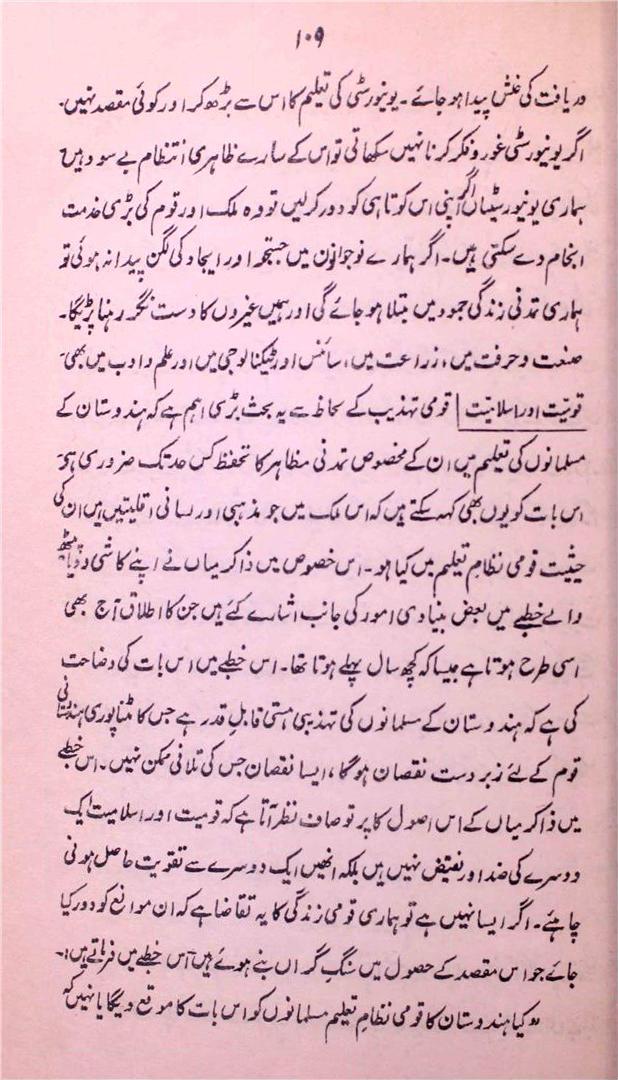 ۱۰۹
دریافت کی خلش پیدا ہو جائے۔ یونیورسٹی کی تعلیم کا اس سے بڑھ کر اور کوئی مقصد نہیں۔
اگر یونیورسٹی غور و فکر کرنا نہیں سکھاتی تو اس کے سارے ظاہری انتظام بے سود ہیں
ہماری یونیورسٹیاں اگر اپنی اس کوتاہی کو دور کر لیں تو وہ ملک اور قوم کی بڑی خدمت
انجام دے سکتی ہیں۔ اگر ہمارے نوجوانوں میں جستجو اور ایجاد کی لگن پیدا نہ ہوئی تو
ہماری تمدنی زندگی جمود میں مبتلا ہو جائے گی اور ہمیں غیروں کا دست نگر رہنا پڑیگا۔
صنعت و حرفت میں، زراعت میں، سائنس اور ٹیکنالوجی میں اور علم و ادب میں بھی۔
قومیّت اور اسلامیّت | قومی تہذیب کے لحاظ سے یہ بحث بڑی اہم ہے کہ ہندوستان کے
مسلمانوں کی تعلیم میں ان کے مخصوص تمدنی مظاہر کا تحفظ کس حد تک ضروری ہے۔
اس بات کو یوں بھی کہہ سکتے ہیں کہ اس ملک میں جو مذہبی اور لسانی اقلیتیں ہیں ان کی
حیثیت قومی نظامِ تعلیم میں کیا ہو۔ اس خصوص میں ذاکر میاں نے اپنے کاشی ودیا پیٹھ
والے خطبے میں بعض بنیادی امور کی جانب اشارے کئے ہیں جن کا اطلاق آج بھی
اسی طرح ہوتا ہے جیسا کہ کچھ سال پہلے ہوتا تھا۔ اس خطبے میں اس بات کی وضاحت
کی ہے کہ ہندوستان کے مسلمانوں کی تہذیبی ہستی قابلِ قدر ہے جس کا مٹنا پوری ہندستانی
قوم کے لئے زبردست نقصان ہوگا، ایسا نقصان جس کی تلافی ممکن نہیں۔ اس خطبے
میں ذاکر میاں کے اس اصول کا پرتو صاف نظر آتا ہے کہ قومیت اور اسلامیت ایک
دوسرے کی ضد اور نقیض نہیں ہیں بلکہ انھیں ایک دوسرے سے تقویت حاصل ہونی
چاہئے۔ اگر ایسا نہیں ہے تو ہماری قومی زندگی کا یہ تقاضا ہے کہ ان موانع کو دور کیا
جائے جو اس مقصد کے حصول میں سنگِ گراں بنے ہوئے ہیں اس خطبے میں فرماتے ہیں:۔
"کیا ہندوستان کا قومی نظامِ تعلیم مسلمانوں کو اس بات کا موقع دیگا یا نہیں کہ